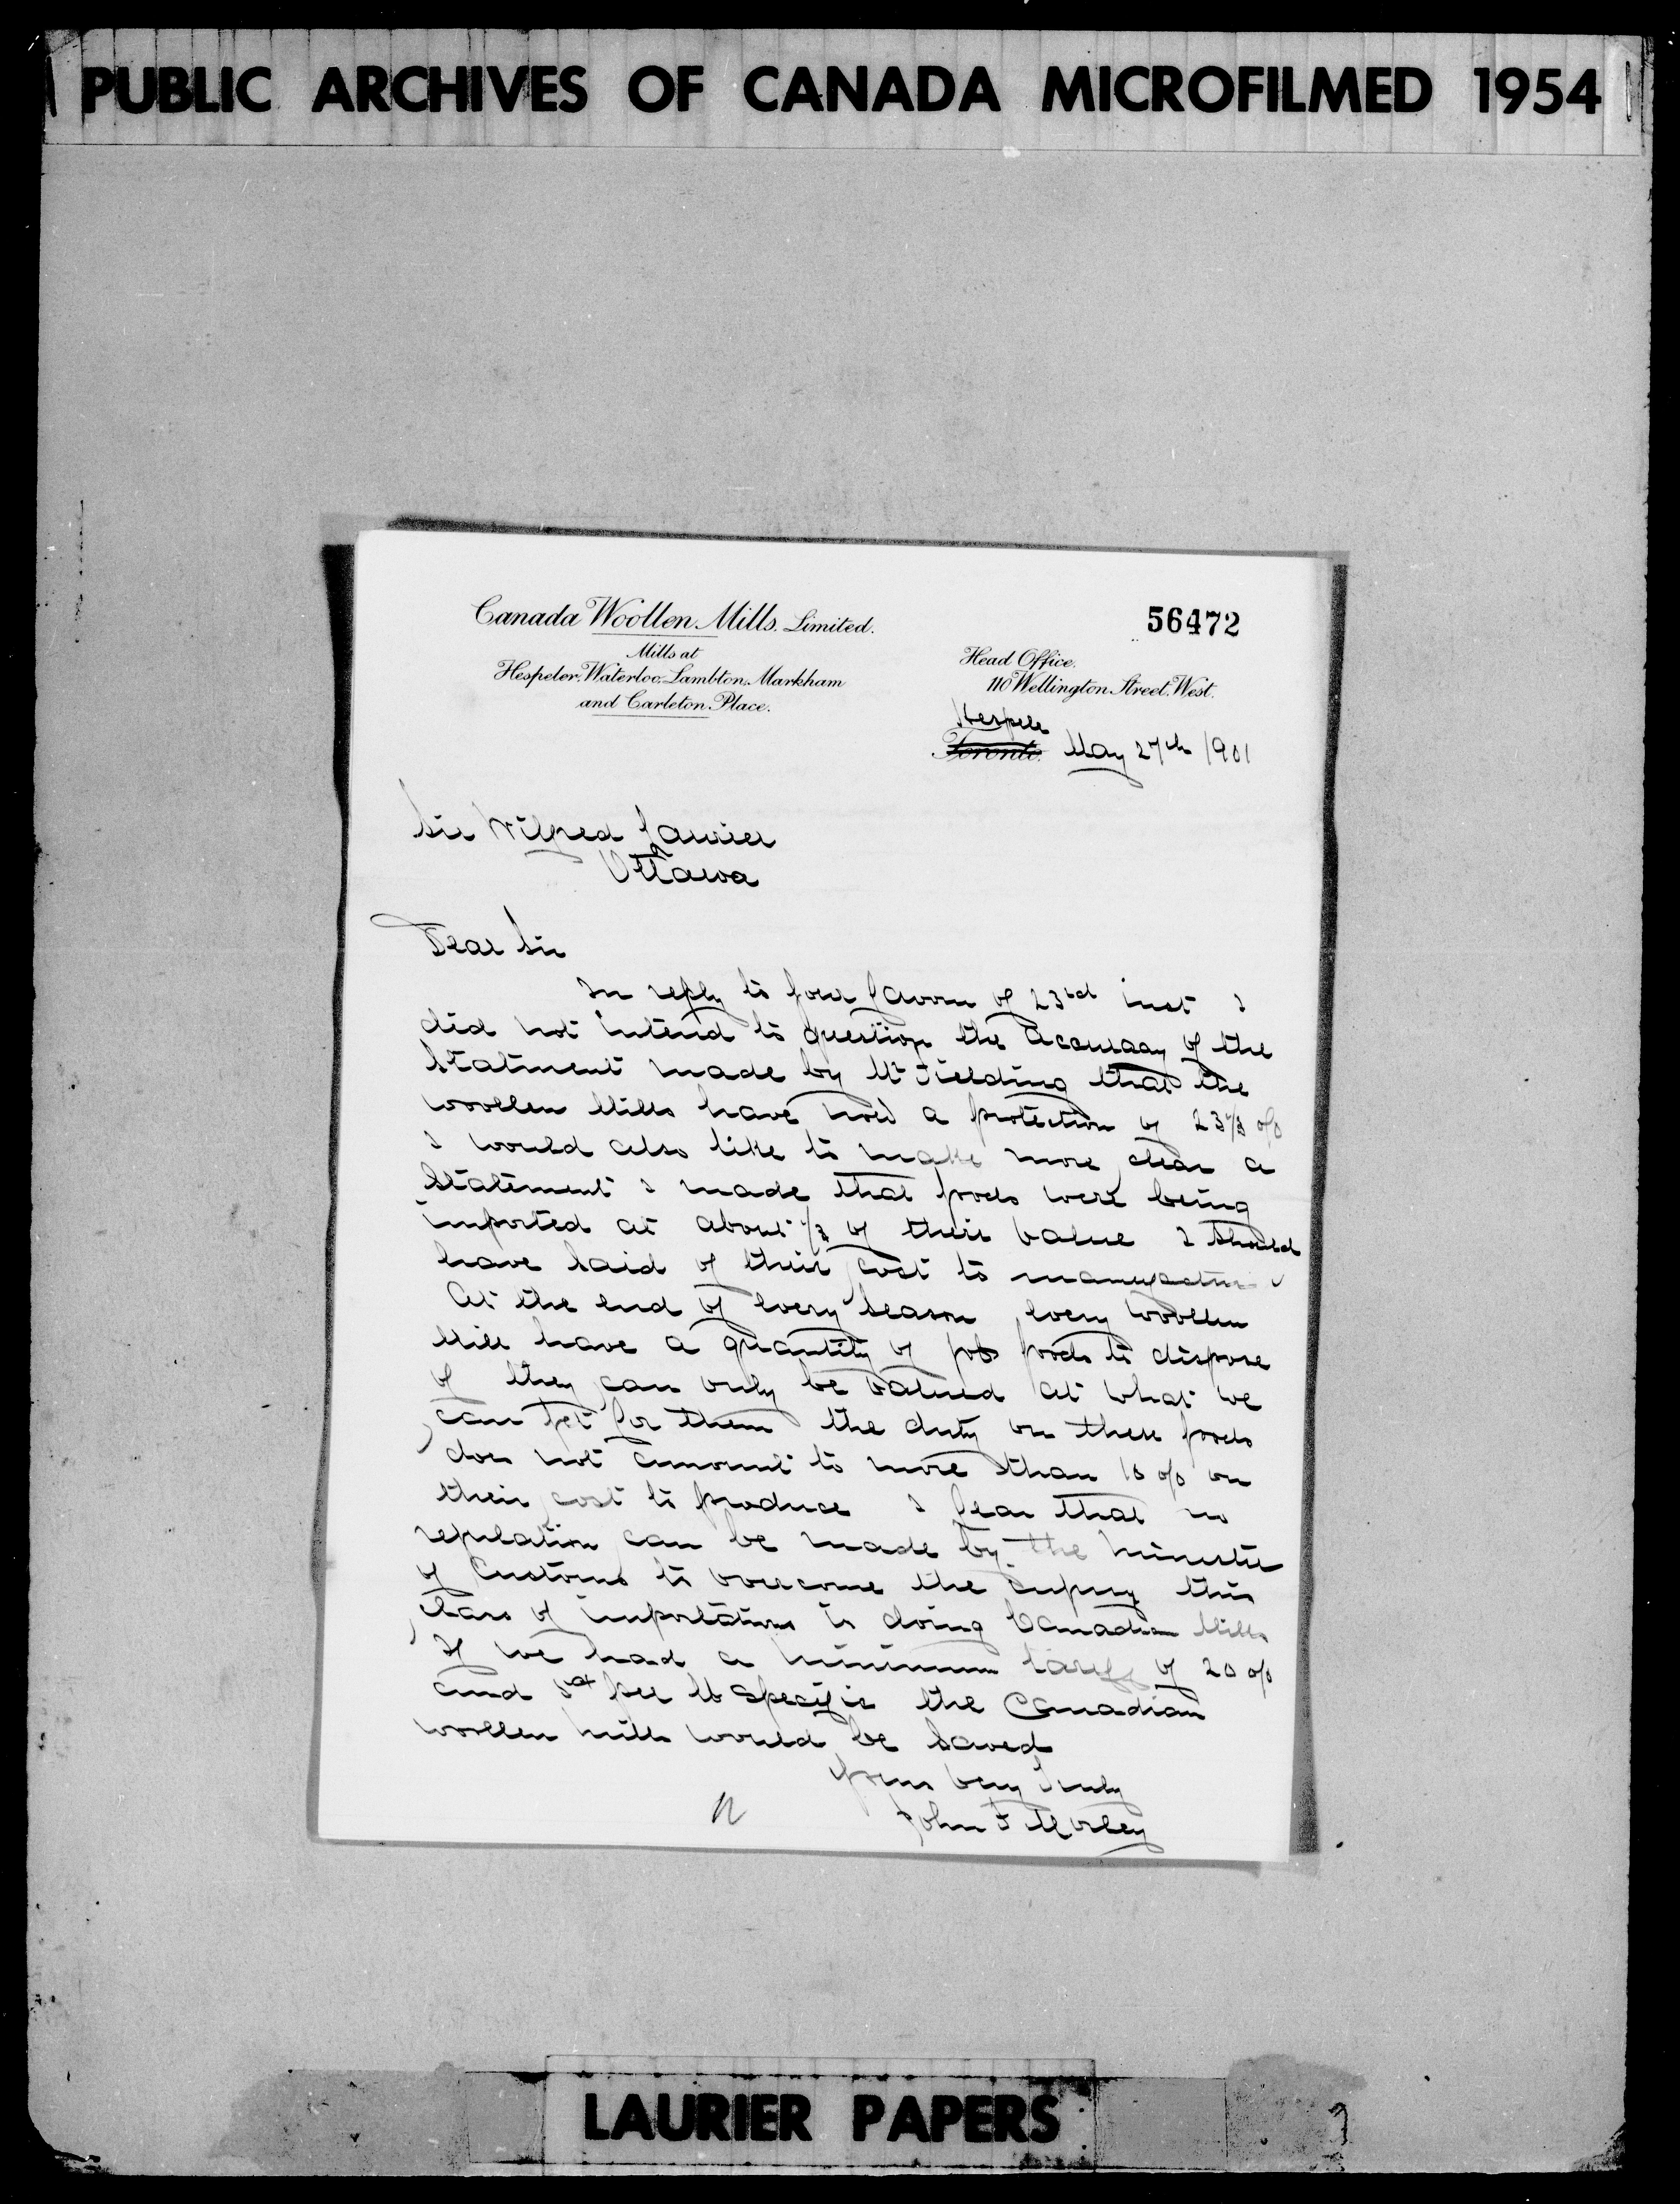 PUBLIC ARCHIVES OF CANADA MICROFILMED 1954
Canada Woollen Mills. Limited.
56472
Mills at
Hespeler, Waterloo, Lambton, Markham
and Carleton Place.
Head Office.
110 Wellington Street, West.
Hespeler
Toronto. May 27th 1901
Sir Wilfred Laurier
Ottawa
Dear Sir
In reply to your favor of 23rd inst I
did not intend to question the accuracy of the
Statment made by Mr Fielding that the
woollen Mills have now a protection of 23⅓ o/o
I would also like to make more clear a
Statement I made that goods were being
imported at about ⅓ of their value I should
have said of their cost to manufacture
At the end of every season every woollen
Mill have a quantity of job goods to dispose
of they can only be valued at what we
can get for them the duty on these goods
does not amount to more than 10 o/o on
their cost to produce I fear that no
regulation can be made by the Minister
of Customs to overcome the injury this
class of importations is doing Canadian Mills
If we had a minimum tariff of 20 o/o
and 5ct per lb specific the Canadian
woollen mills would be saved
Yours very truly
John F Morley
LAURIER PAPERS